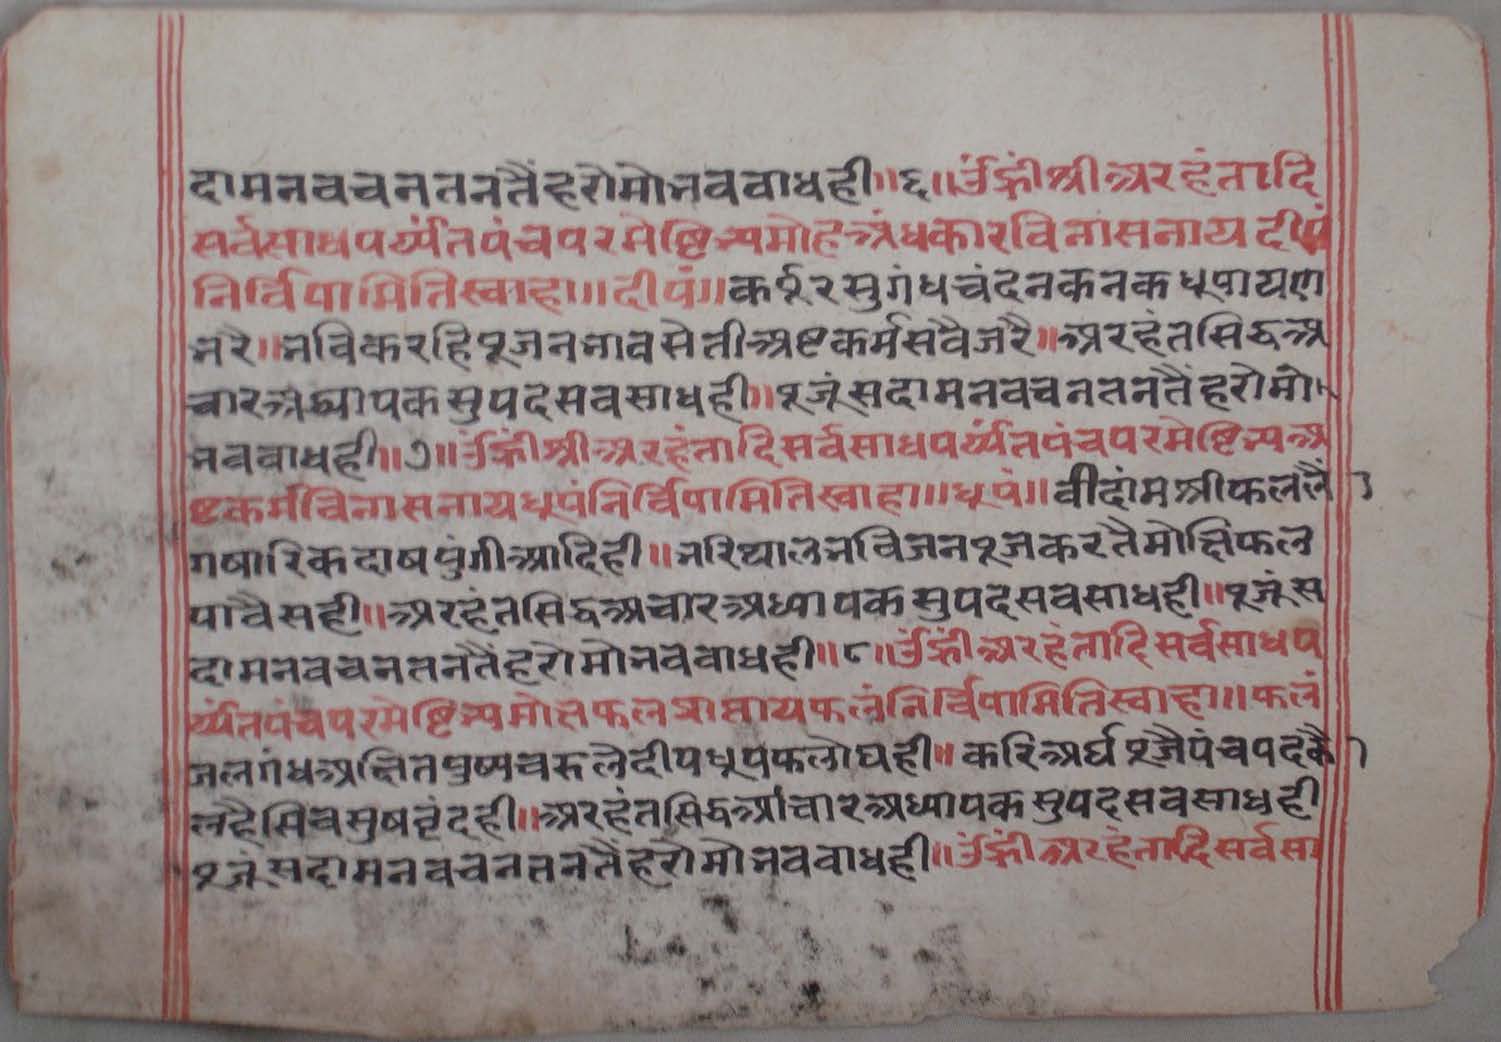 दामनवचनतनतैंहरोमोभववाधही॥६॥उंह्रींश्रीअरहंतादि
सर्वसाधपर्य्यंतपंचपरमेष्टिभ्यमोहअंधकारविनासनायदीपं
निर्विपामितिस्वाहा॥दीपं॥कर्पूरसुगंधचंदनकनकधूपायण
भरै॥भविकरहिपूजनभावसेतीअष्टकर्मसवैजरै॥अरहंतसिद्धआ
चारअध्यापकसुपदसवसाधही॥पूजूंसदामनवचनतनतैंहरोमो
भववाधही॥७॥उंह्रींश्रीअरहंतादिसर्वसाधपर्य्यंतपंचपरमेष्टिभ्यअ
ष्टकर्मविनासनायधूपंनिर्विपामितिस्वाहा॥धूपं॥वीदांमश्रीफललैं
गषारिकदाषपुंगीआदिही॥भरिथालभविजनपूजकरतैमोक्षिफल
पावैसही॥अरहंतसिद्धआचारअध्यापकसुपदसवसाधही॥पूजूंस
दामनवचनतनतैंहरोमोभववाधही॥८॥उंह्रींअरहंतादिसर्वसाधप
र्य्यंतपंचपरमेष्टिभ्यमोक्षफलप्राप्तायफलंनिर्विपामितिस्वाहा॥फलं
जलगंधअक्षितपुष्पचरुलेदीपधूपफलोघही॥करिअर्घपूजैपंचपदकै
लहैसिवसुषवृंदही॥अरहंतसिद्धआचारअध्यापकसुपदसवसाधही
पूजूंसदामनवचनतनतैंहरोमोभववाधही॥उंह्रींअरहंतादिसर्वसा